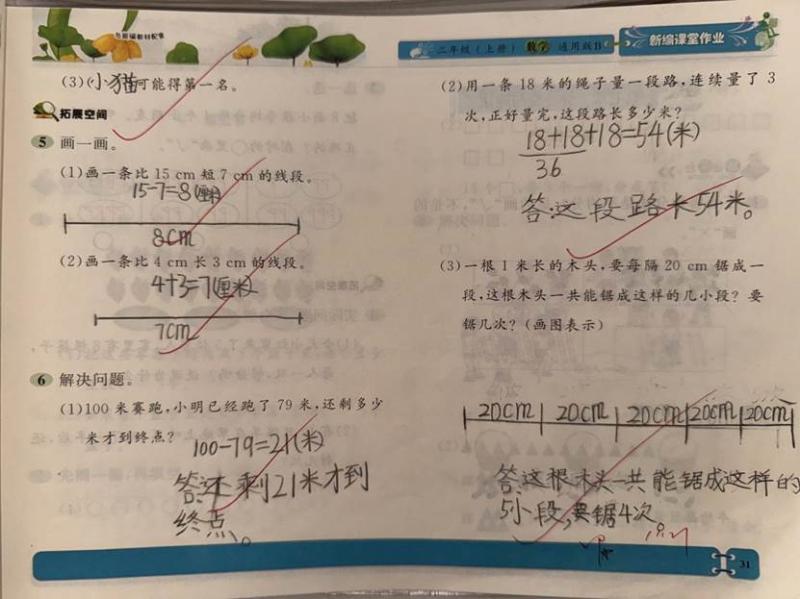 与部编教材配套
(3)(小猫)可能得第一名。
拓展空间
5 画一画。
(1)画一条比 15 cm 短 7 cm 的线段。
15-7=8(厘米)
8cm
(2)画一条比 4 cm 长 3 cm 的线段。
4+3=7(厘米)
7cm
6 解决问题。
(1)100 米赛跑,小明已经跑了 79 米,还剩多少
米才到终点?
100-79=21(米)
答:还剩21米才到
终点。
二年级(上册) 数学 通用版B
新编课堂作业
(2)用一条 18 米的绳子量一段路,连续量了 3
次,正好量完,这段路长多少米?
18+18+18=54(米)
36
答:这段路长54米。
(3)一根 1 米长的木头,要每隔 20 cm 锯成一
段,这根木头一共能锯成这样的几小段?要
锯几次?(画图表示)
20cm 20cm 20cm 20cm 20cm
答:这根木头一共能锯成这样的
5小段,要锯4次
31